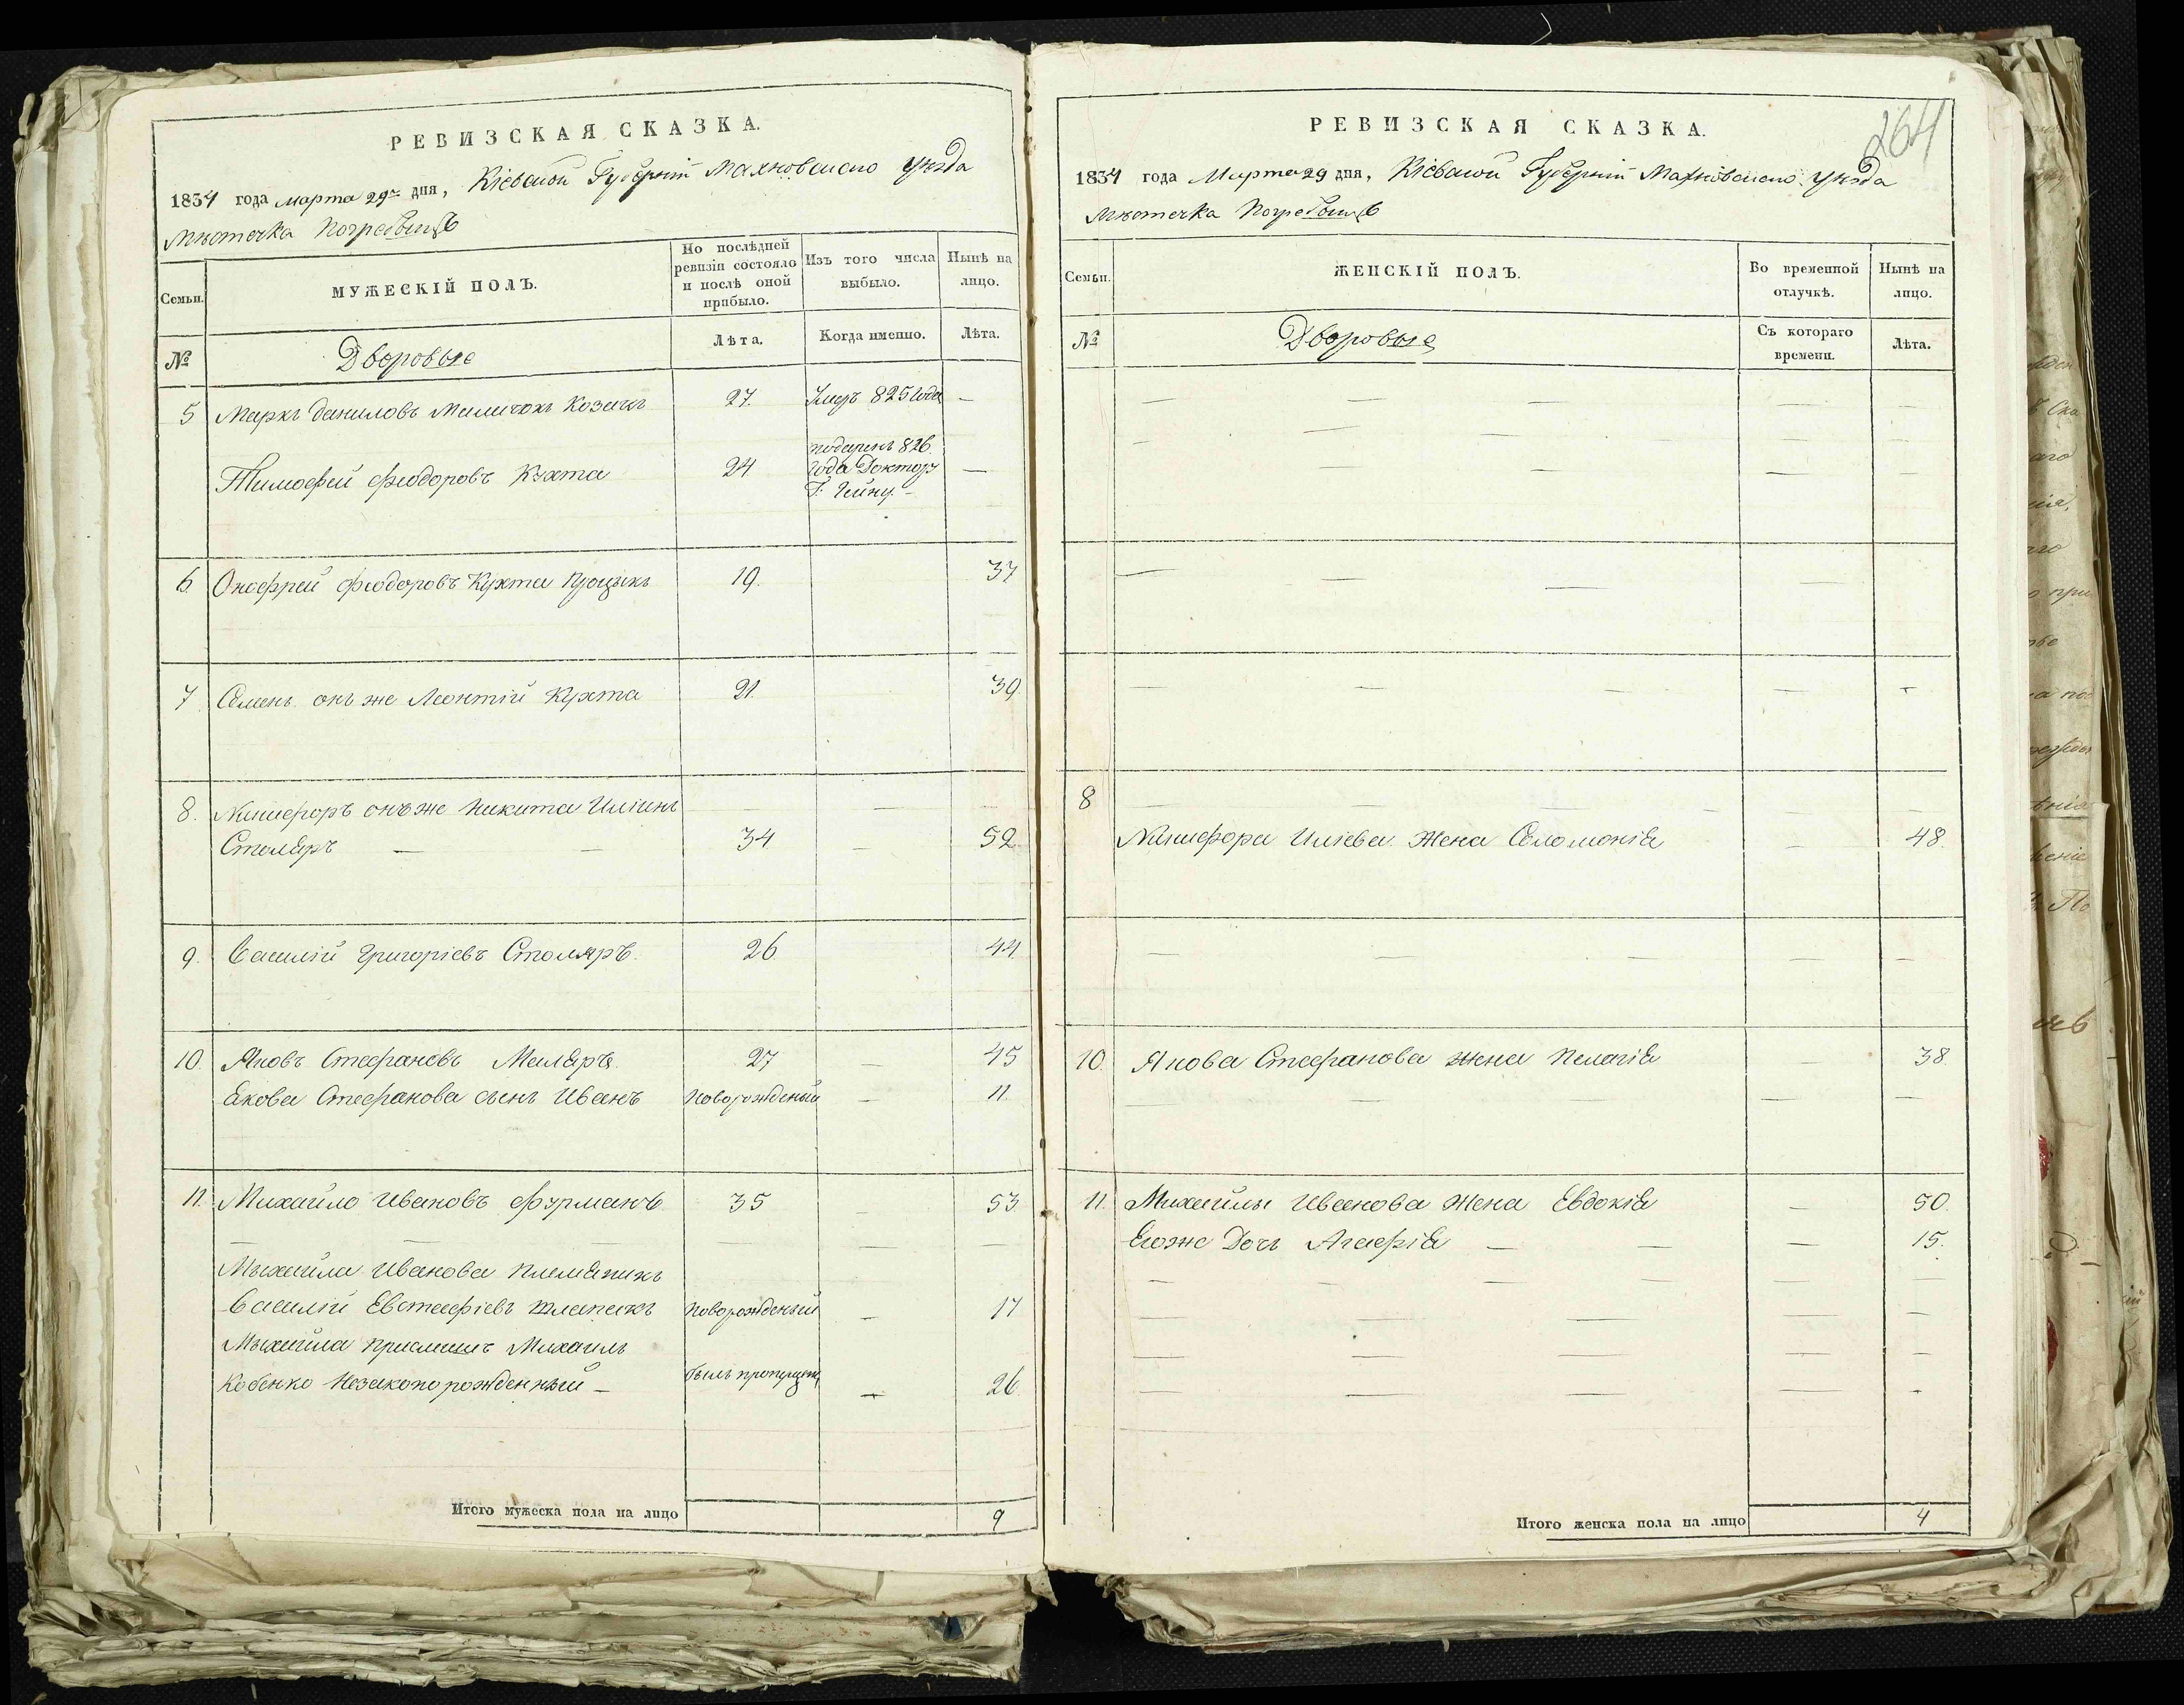 РЕВИЗСКАЯ СКАЗКА.
1834 года марта 29го дня, Кіевской Губерніи Махновскаго уѣзда
Мѣстечка Погребищъ
Семьи.
МУЖЕСКІЙ ПОЛЪ.
По послѣдней ревизіи состояло и послѣ оной прибыло.
Изъ того числа выбыло.
Нынѣ на лицо.
№
Дворовые
Лѣта.
Когда именно.
Лѣта.
5 Маркъ Даниловъ Козакъ 27. Умеръ 825 года —
Тимофей Феодоровъ Кухта 24 подаренъ 826. года Доктору Г. —
6. Онофрей Феодоровъ Кухта 19. 37
7 Семенъ онъ же Леонтій Кухта 21. 39
8. Никифоръ онъ же Никита Иліинъ — — —
Столяръ — — 34 — 52
9. Василій Григоріевъ Столяръ. 26 44
10. Яковъ Стефановъ Маляръ. 27 — 45
Якова Стефанова сынъ Иванъ Новорожденый — 11.
11. Михайло Ивановъ Фурманъ 35 — 53
— — — — — —
Михайла Иванова племяникъ
Василій Евстафіевъ новорожденый — 17
Михайла приемышъ Михаилъ
Кобенко Незаконорожденный — былъ пропущен — 26
Итого мужеска пола на лицо 9
264
РЕВИЗСКАЯ СКАЗКА.
1834 года Марта 29 дня, Кіевской Губерніи Махновскаго Уѣзда
Мѣстечка Погребищъ
Семьи.
ЖЕНСКІЙ ПОЛЪ.
Во временной отлучкѣ.
Нынѣ на лицо.
№
Дворовые
Съ котораго времени.
Лѣта.
8 — — — — —
Никифора Иліева Жена Соломонія — 48.
— — — — —
10. Якова Стефанова жена Пелагія — 38
— — — — —
11. Михайлы Иванова Жена Евдокія — 50.
Егоже Дочь Агафія — — — 15.
Итого женска пола на лицо 4